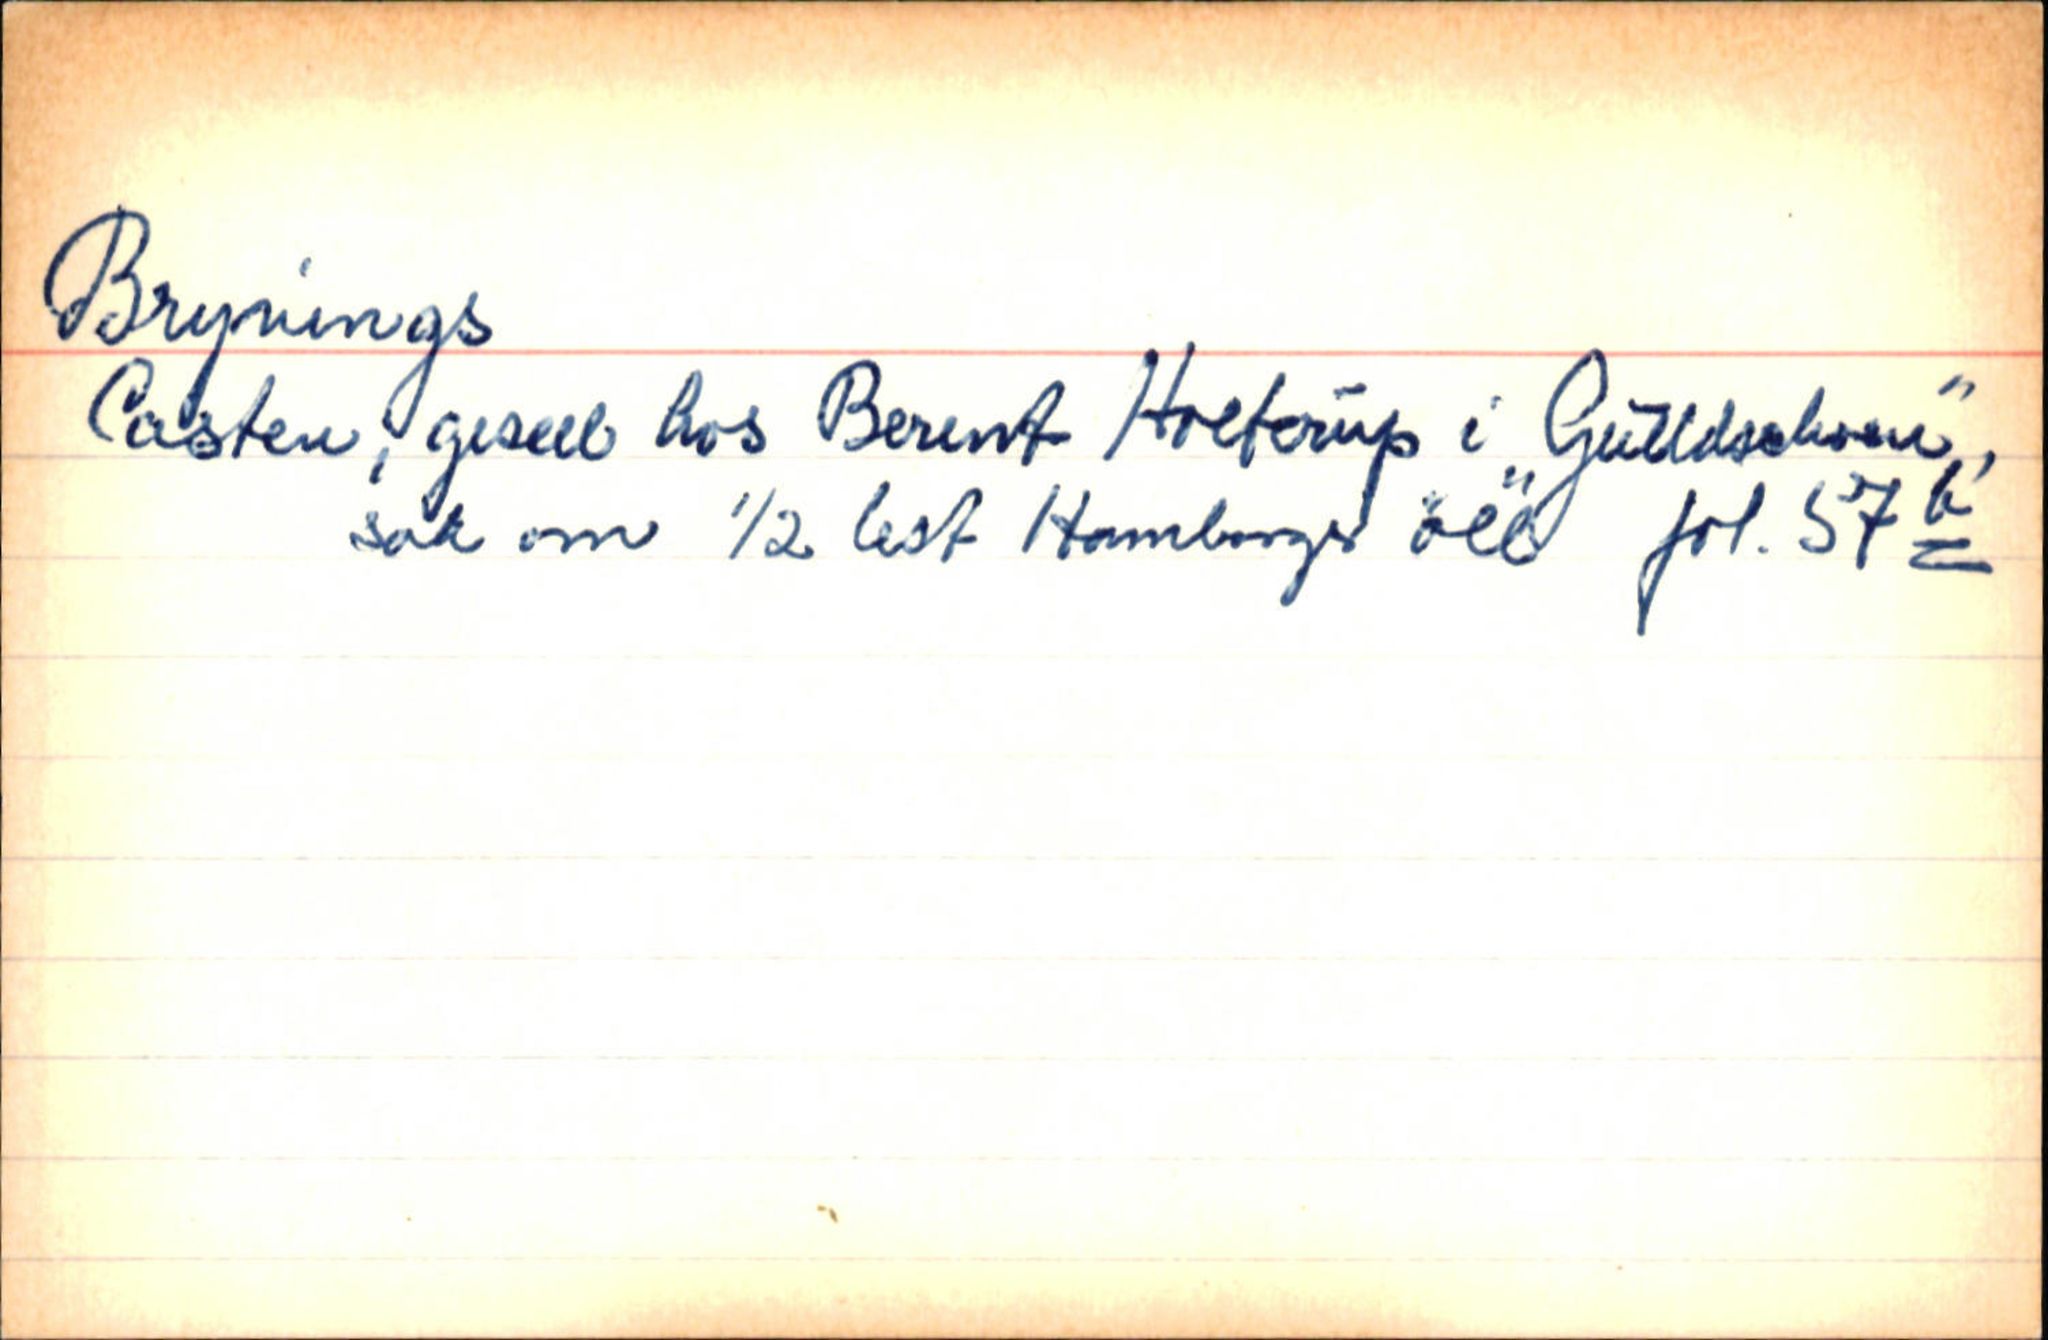 Brynings
Casten, gesell hos Berent Holterup i „Gulldschoen",
sak om 1/2 lest Hamburger öll fol. 57 b